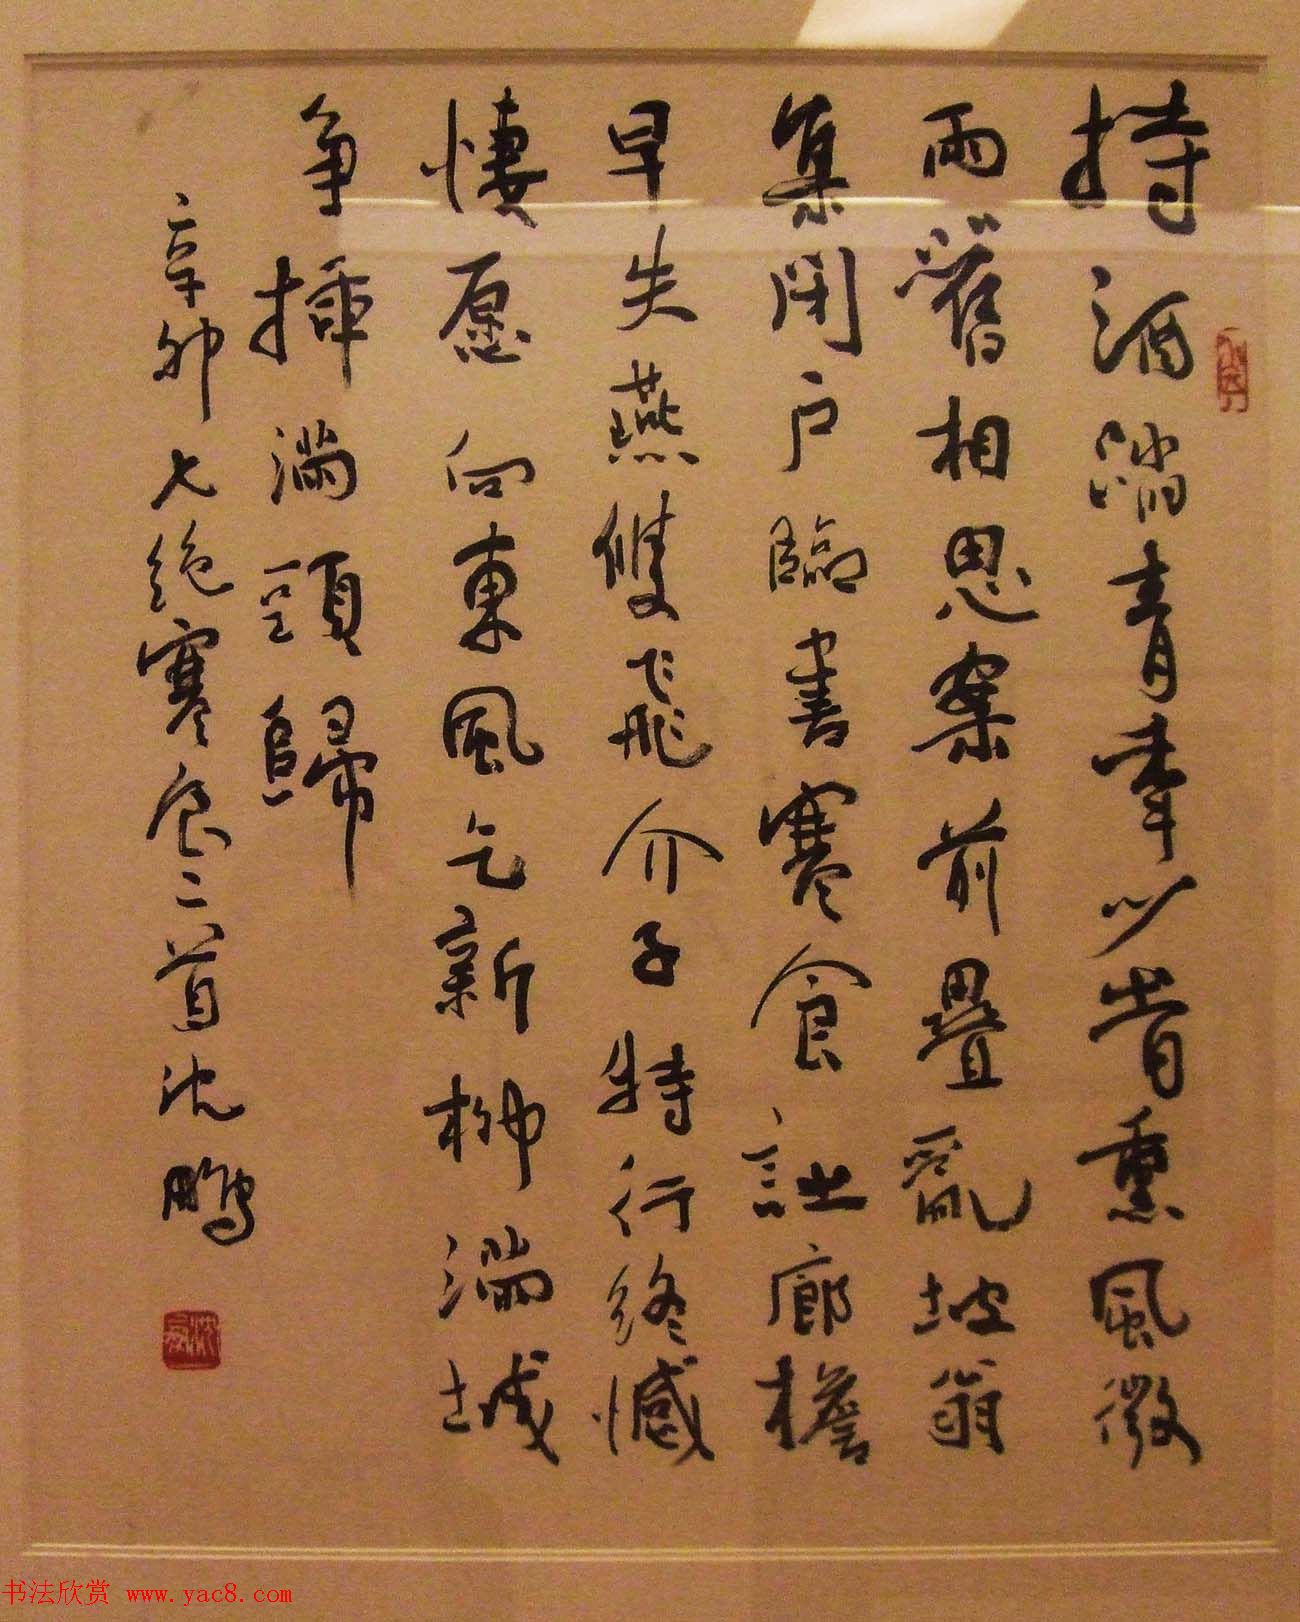 持酒踏青以昔熏風微
雨舊相思案前疊亂坡翁
集閉户臨書寒食詩廊檐
早失燕雙飛介子特行終憾
悽愿向東風乞新柳滿城
争插滿頭歸
辛卯七绝寒食二首沈鹏
书法欣赏 www.yac8.com